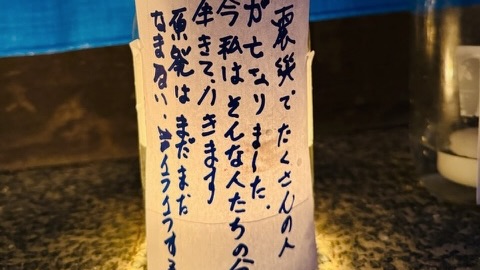 震災でたくさんの人
が亡なりました。
今私はそんな人たちの分
生きていきます
原発はまだまだ
なまない、イライラする